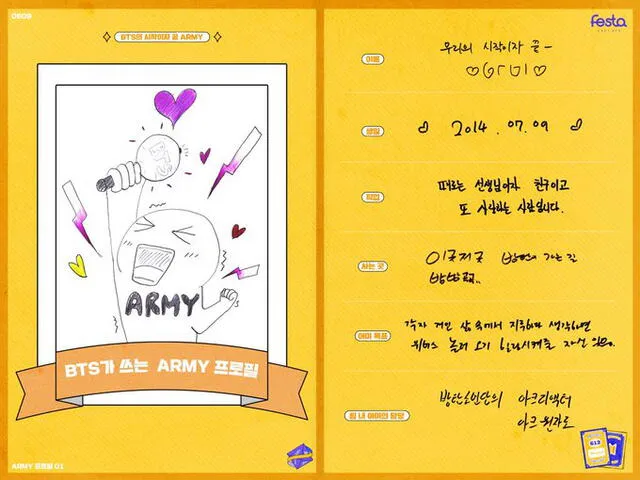 0609
BTS의 시작이자 끝 ARMY
BTS
ARMY
BTS가 쓰는 ARMY 프로필
ARMY 프로필 01
festa
이름
우리의 시작이자 끝 -
생일
2014. 07. 09
직업
때로는 선생님이자 친구이고
또 사랑하는 사람입니다.
사는 곳
이곳저곳 방탄이 가는 길
방방곡곡..
아미 목표
각자 개인 삶 속에서 지루하다 생각하면
위버스 놀러 오기
팀 내 아미의 담당
방탄소년단의 아크리액터
아크 원자로
612